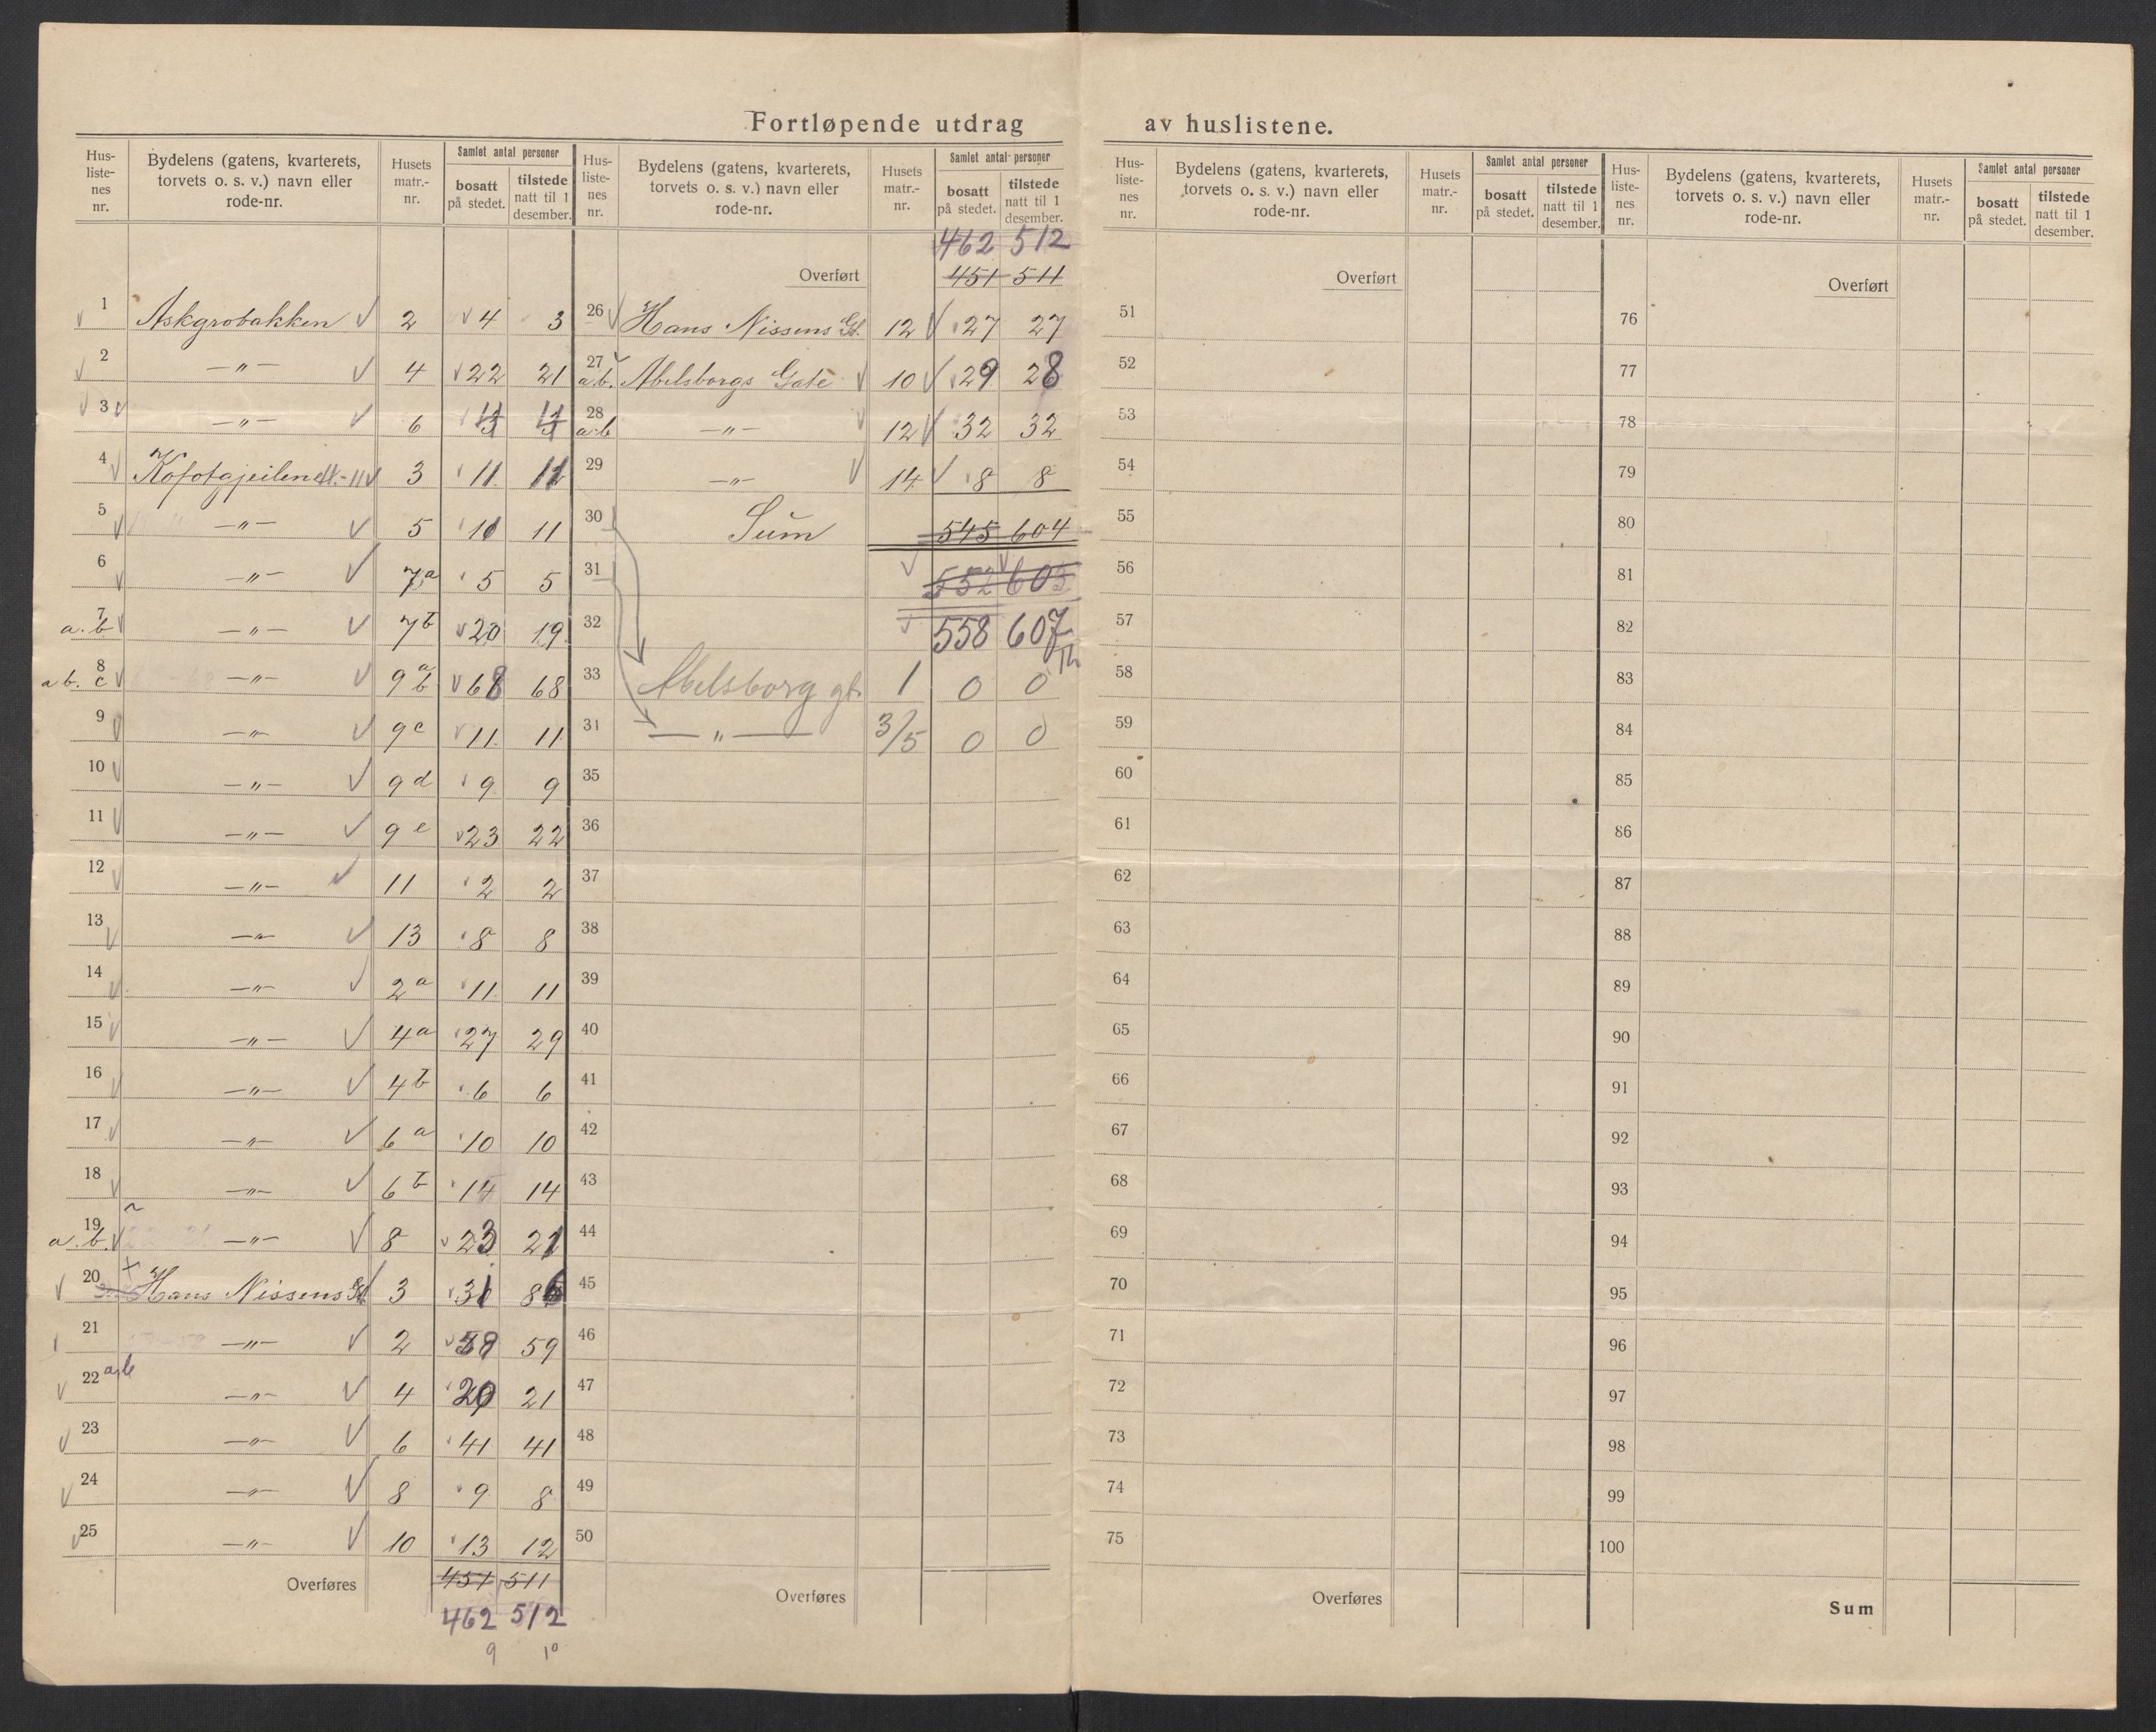 Fortløpende utdrag av huslistene.
Hus-liste-nes nr. | Bydelens (gatens, kvarterets, torvets o. s. v.) navn eller rode-nr. | Husets matr.-nr. | Samlet antal personer | bosatt på stedet. | tilstede natt til 1 desember.
1 Askgrobakken 2 4 3
2 —"— 4 22 21
3 —"— 6
4 Kofotgjeilen 3 11 11
5 —"— 5 10 11
6 —"— 7a 5 5
7 a.b —"— 7b 20 19
8 a b. c —"— 9 a b 68 68
9 —"— 9c 11 11
10 —"— 9d 9 9
11 —"— 9e 23 22
12 —"— 11 2 2
13 —"— 13 8 8
14 —"— 2a 11 11
15 —"— 4a 27 29
16 —"— 4b 6 6
17 —"— 6a 10 10
18 —"— 6b 14 14
19 a.b. —"— 8 23 21
20 Hans Nissens Gt. 3 31 86
21 —"— 2 59 59
22 a,b —"— 4 20 21
23 —"— 6 41 41
24 —"— 8 9 8
25 —"— 10 13 12
Overføres 451 511
462 512
9 10
Hus-liste-nes nr. | Bydelens (gatens, kvarterets, torvets o. s. v.) navn eller rode-nr. | Husets matr.-nr. | Samlet antal personer | bosatt på stedet. | tilstede natt til 1 desember.
462 512
Overført 451 511
26 Hans Nissens Gt. 12 27 27
27 a.b. Abelsborgs Gate 10 29 28
28 a.b —"— 12 32 32
29 —"— 14 8 8
30 Sum 545 604
31 552 605
32 558 607
Th
33 Abelsborg gt. 1 0 0
34 —"— 3/5 0 0
35
36
37
38
39
40
41
42
43
44
45
46
47
48
49
50
Overføres
Hus-liste-nes nr. | Bydelens (gatens, kvarterets, torvets o. s. v.) navn eller rode-nr. | Husets matr.-nr. | Samlet antal personer | bosatt på stedet. | tilstede natt til 1 desember.
Overført
51
52
53
54
55
56
57
58
59
60
61
62
63
64
65
66
67
68
69
70
71
72
73
74
75
Overføres
Hus-liste-nes nr. | Bydelens (gatens, kvarterets, torvets o. s. v.) navn eller rode-nr. | Husets matr.-nr. | Samlet antal personer | bosatt på stedet. | tilstede natt til 1 desember.
Overført
76
77
78
79
80
81
82
83
84
85
86
87
88
89
90
91
92
93
94
95
96
97
98
99
100
Sum